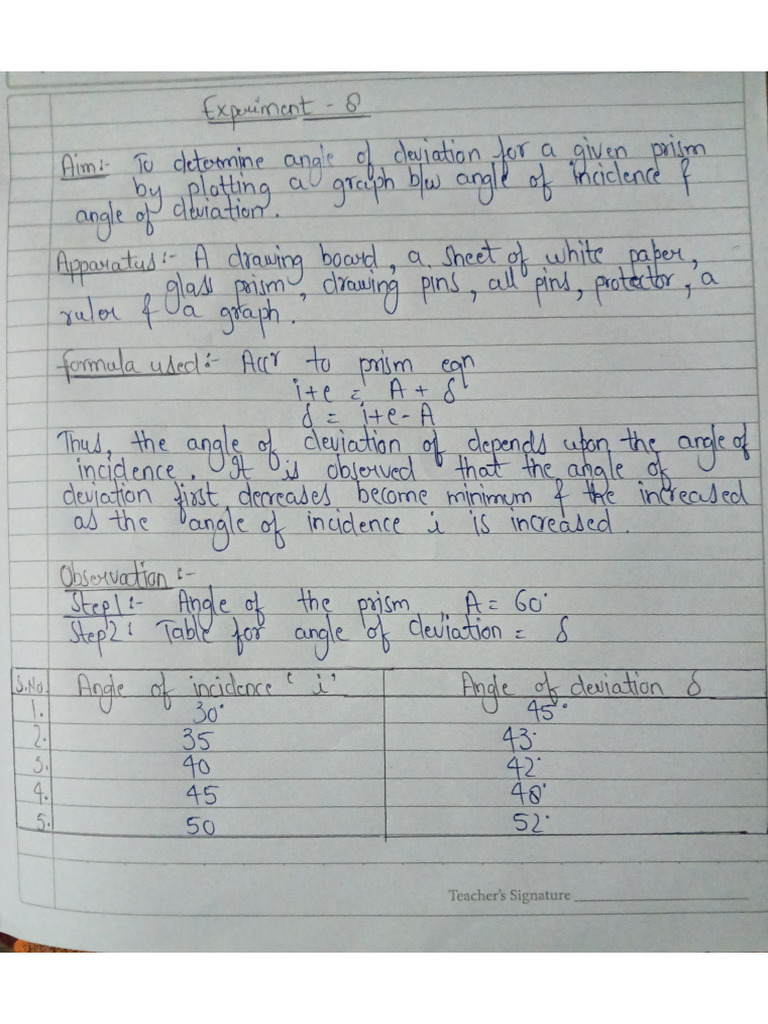 Experiment - 8
Aim:- To determine angle of deviation for a given prism
by plotting a graph b/w angle of incidence &
angle of deviation.
Apparatus:- A drawing board, a sheet of white paper,
glass prism, drawing pins, all pins, protector, a
ruler & a graph.
formula used:- Accr to prism eqn
i+e = A + δ
δ = i+e-A
Thus, the angle of deviation of depends upon the angle of
incidence. It is observed that the angle of
deviation first decreases become minimum & the increased
as the angle of incidence i is increased.
Observation :-
Step1:- Angle of the prism, A = 60°
Step2: Table for angle of deviation = δ
S.No. Angle of incidence 'i' Angle of deviation δ
1. 30° 45°
2. 35 43°
3. 40 42°
4. 45 48°
5. 50 52°
Teacher's Signature